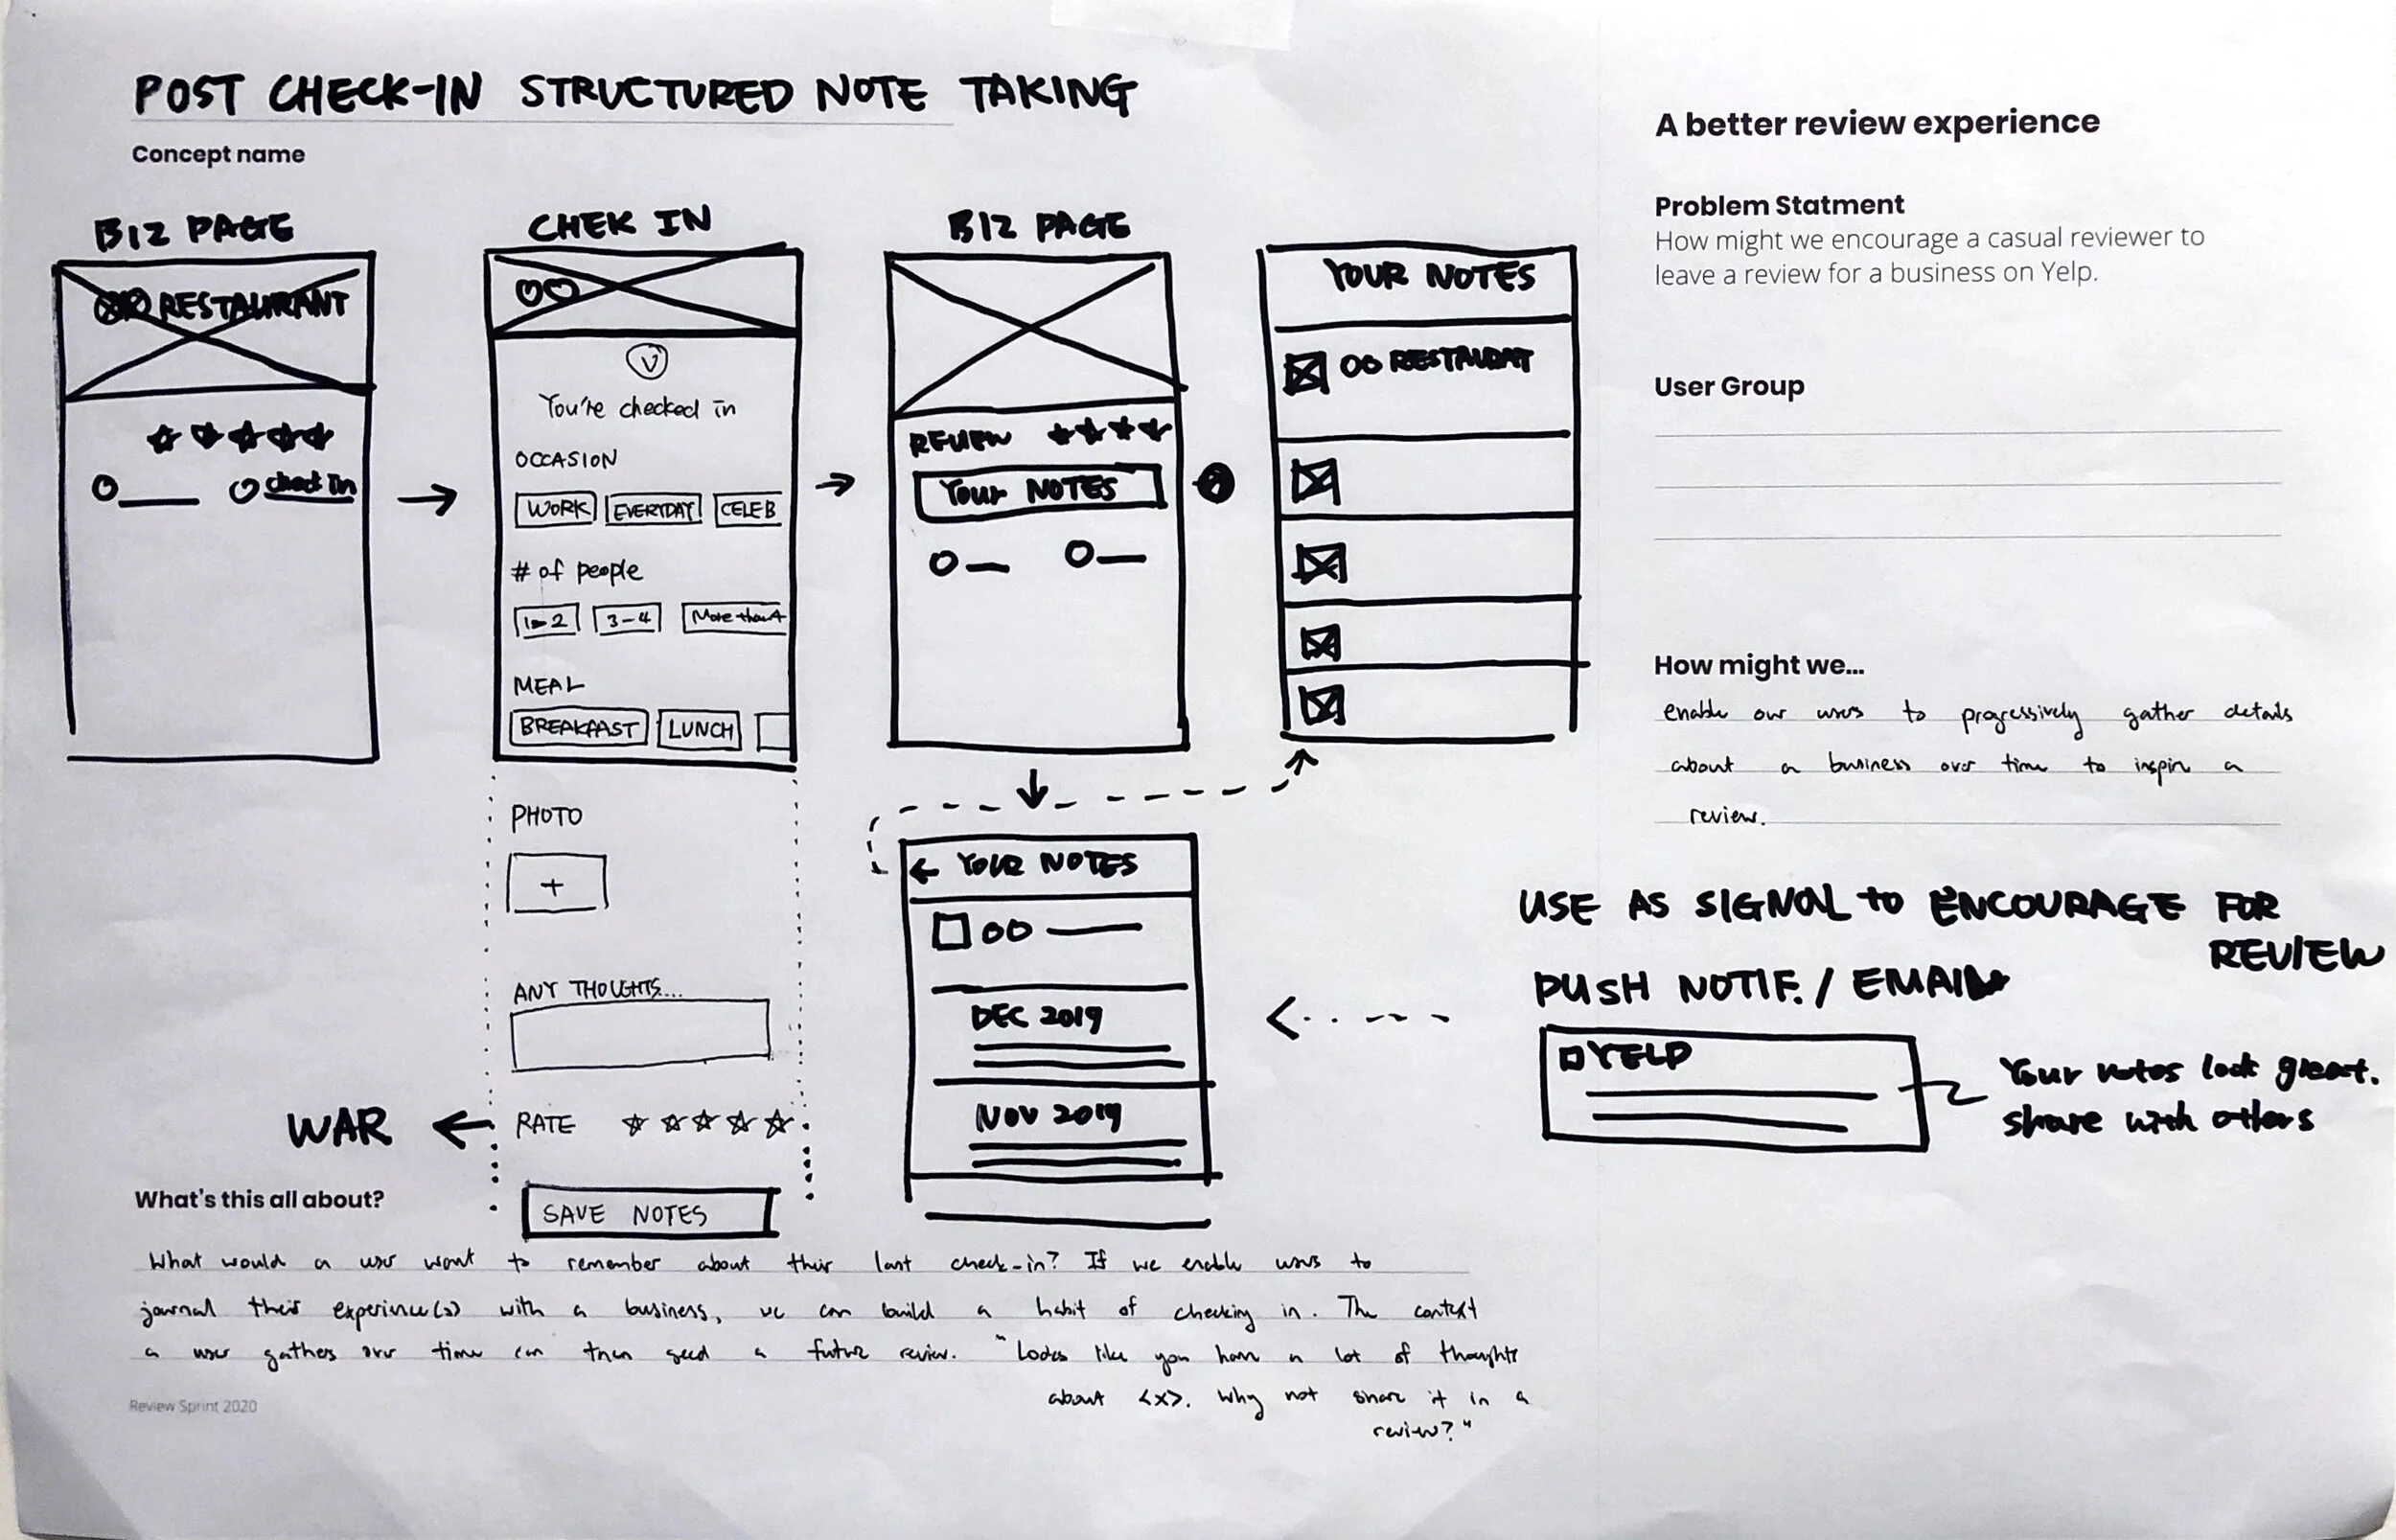 POST CHECK-IN STRUCTURED NOTE TAKING
Concept name
BIZ PAGE
RESTAURANT
check In
CHEK IN
OO
V
You're checked in
OCCASION
WORK EVERYDAY CELEB
# of people
1-2 3-4 More than 4
MEAL
BREAKFAST LUNCH
PHOTO
+
ANY THOUGHTS...
WAR
RATE
SAVE NOTES
BIZ PAGE
REVIEW
Your NOTES
YOUR NOTES
OO
DEC 2019
NOV 2019
YOUR NOTES
OO RESTAURAT
What's this all about?
What would a user want to remember about their last check-in? If we enable users to
journal their experience(s) with a business, we can build a habit of checking in. The context
a user gathers over time can then seed a future review. "Looks like you have a lot of thoughts
about <x>. Why not share it in a
review?"
Review Sprint 2020
A better review experience
Problem Statment
How might we encourage a casual reviewer to
leave a review for a business on Yelp.
User Group
How might we...
enable our users to progressively gather details
about a business over time to inspire a
review.
USE AS SIGNAL to ENCOURAGE FOR
REVIEW
PUSH NOTIF. / EMAIL
YELP
Your notes look great.
share with others